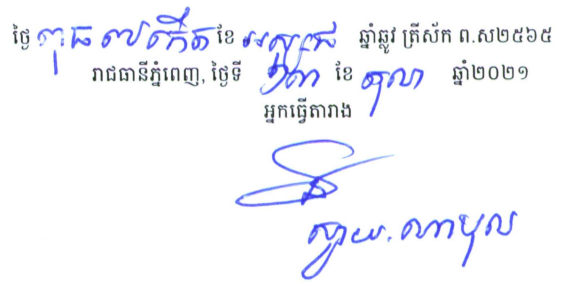 ថ្ងៃ ពុធ ៧កើត ខែ អស្សុជ ឆ្នាំឆ្លូវ ត្រីស័ក ព.ស២៥៦៥
រាជធានីភ្នំពេញ, ថ្ងៃទី ១៣ ខែ តុលា ឆ្នាំ២០២១
អ្នកធ្វើតារាង
ស្វាយ. ណាបុល